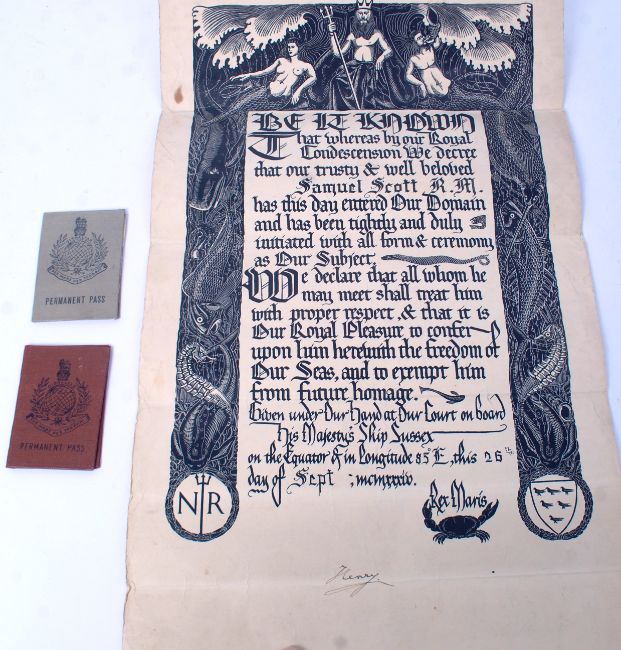 BE IT KNOWN
That whereas by our Royal
Condescension We decree
that our trusty & well beloved
Samuel Scott, R.M.
has this day entered Our Domain
and has been tightly and duly
initiated with all form & ceremony
as Our Subject.
We declare that all whom he
may meet shall treat him
with proper respect, & that it is
Our Royal Pleasure to confer
upon him herewith the freedom of
Our Seas, and to exempt him
from future homage.
Given under Our Hand at Our Court on board
His Majesty's Ship Sussex
on the Equator & in Longitude 85°E, this 26th
day of Sept ; mcmxxxiv.
Rex Maris
N R
Henry.
PERMANENT PASS
PERMANENT PASS